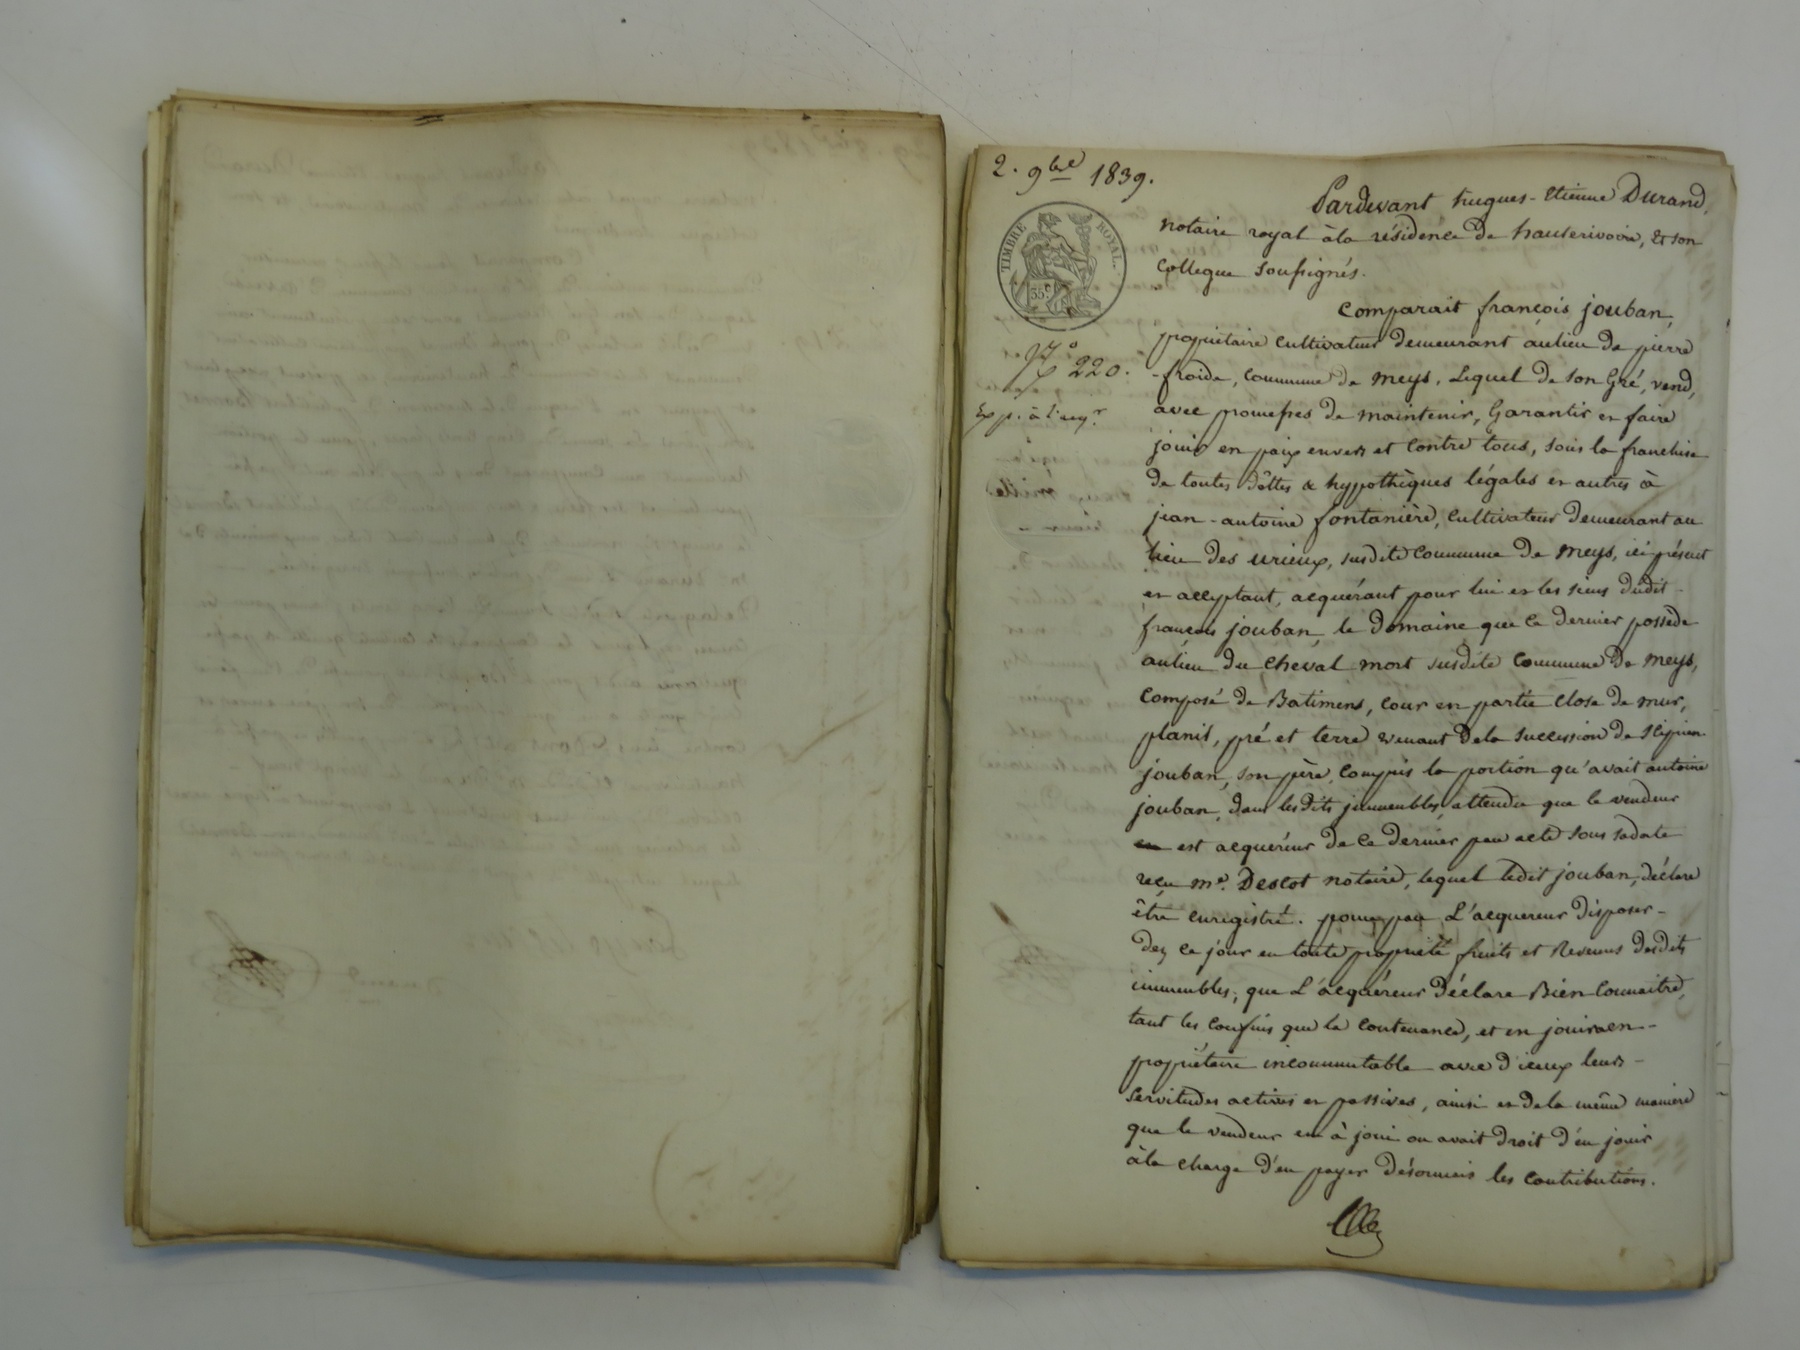 2. 9bre 1839.
Pardevant hugues-etienne Durand,
notaire royal à la résidence de hauterivoire, et son
collegue soussignés.
TIMBRE ROYAL.
35c
Comparait françois jouban,
propriétaire cultivateur demeurant au lieu de pierre
N° 220.
-froide, commune de meys, Lequel de son Gré, vend,
Exp. à l'acqr
avec promesses de maintenir, Garantir et faire
jouir en paix envers et contre tous, sous la franchise
de toutes dêttes & hypothèques légales et autres à
jean-antoine fontanière, cultivateur demeurant au
lieu des urieux, susdite commune de meys, ici présent
et acceptant, acquérant pour lui et les siens dudit
françois jouban, le domaine que ce dernier possède
au lieu du cheval mort susdite commune de meys,
composé de Batimens, cour en partie close de mur,
planit, pré et terre venant de la succession de
jouban, son père, compris la portion qu'avait antoine
jouban, dans lesdits immeubles, attendu que le vendeur
est acquéreur de ce dernier par acte sous sa date
reçu me. Descot notaire, lequel ledit jouban, déclare
être enregistré. pour par L'acquereur disposer
dez ce jour en toute propriété fruits et Revenus desdits
immeubles, que L'acquéreur déclare Bien connaitre,
tant les confins que la contenance, et en jouira en
propriétaire incommutable avec d'iceux leurs
servitudes actives et passives, ainsi et de la même manière
que le vendeur en à joui ou avait droit d'en jouir
à la charge d'en payer désormais les contributions.